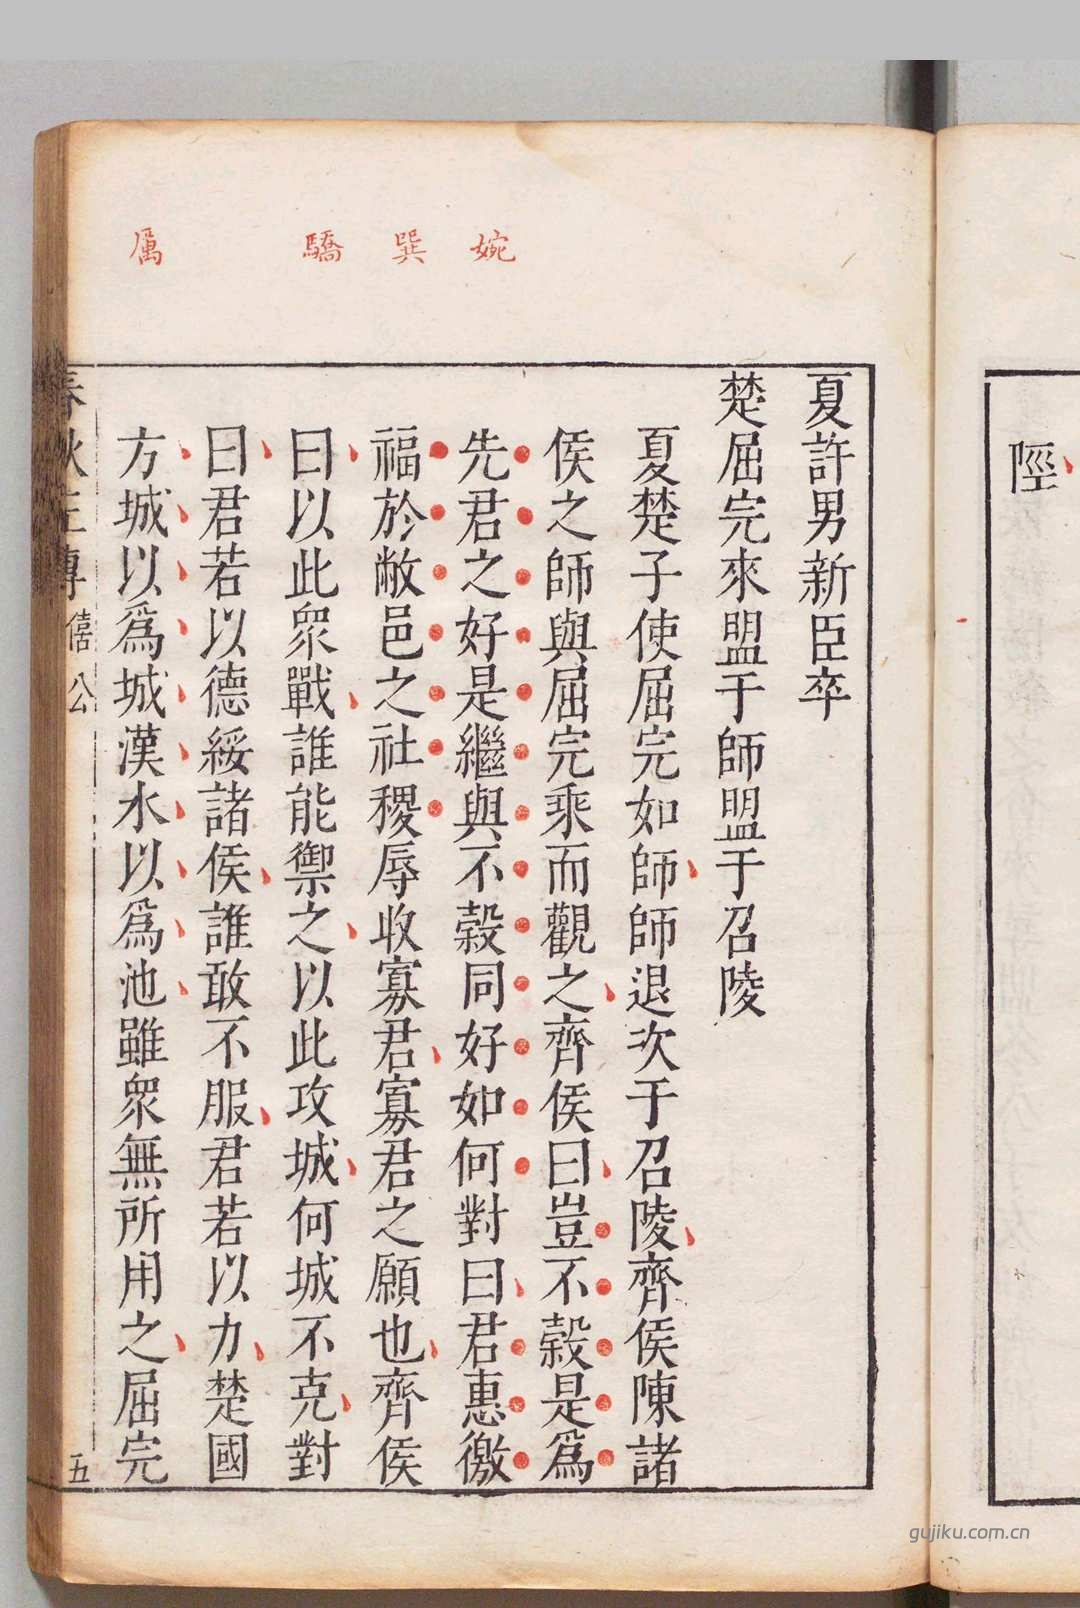 陘
婉
巽
驕
厲
夏許男新臣卒
楚屈完來盟于師盟于召陵
夏楚子使屈完如師師退次于召陵齊侯陳諸
侯之師與屈完乘而觀之齊侯曰豈不穀是爲
先君之好是繼與不穀同好如何對曰君惠徼
福於敝邑之社稷辱收寡君寡君之願也齊侯
曰以此眾戰誰能禦之以此攻城何城不克對
曰君若以德綏諸侯誰敢不服君若以力楚國
方城以爲城漢水以爲池雖眾無所用之屈完
春秋左傳 僖公 五
gujiku.com.cn